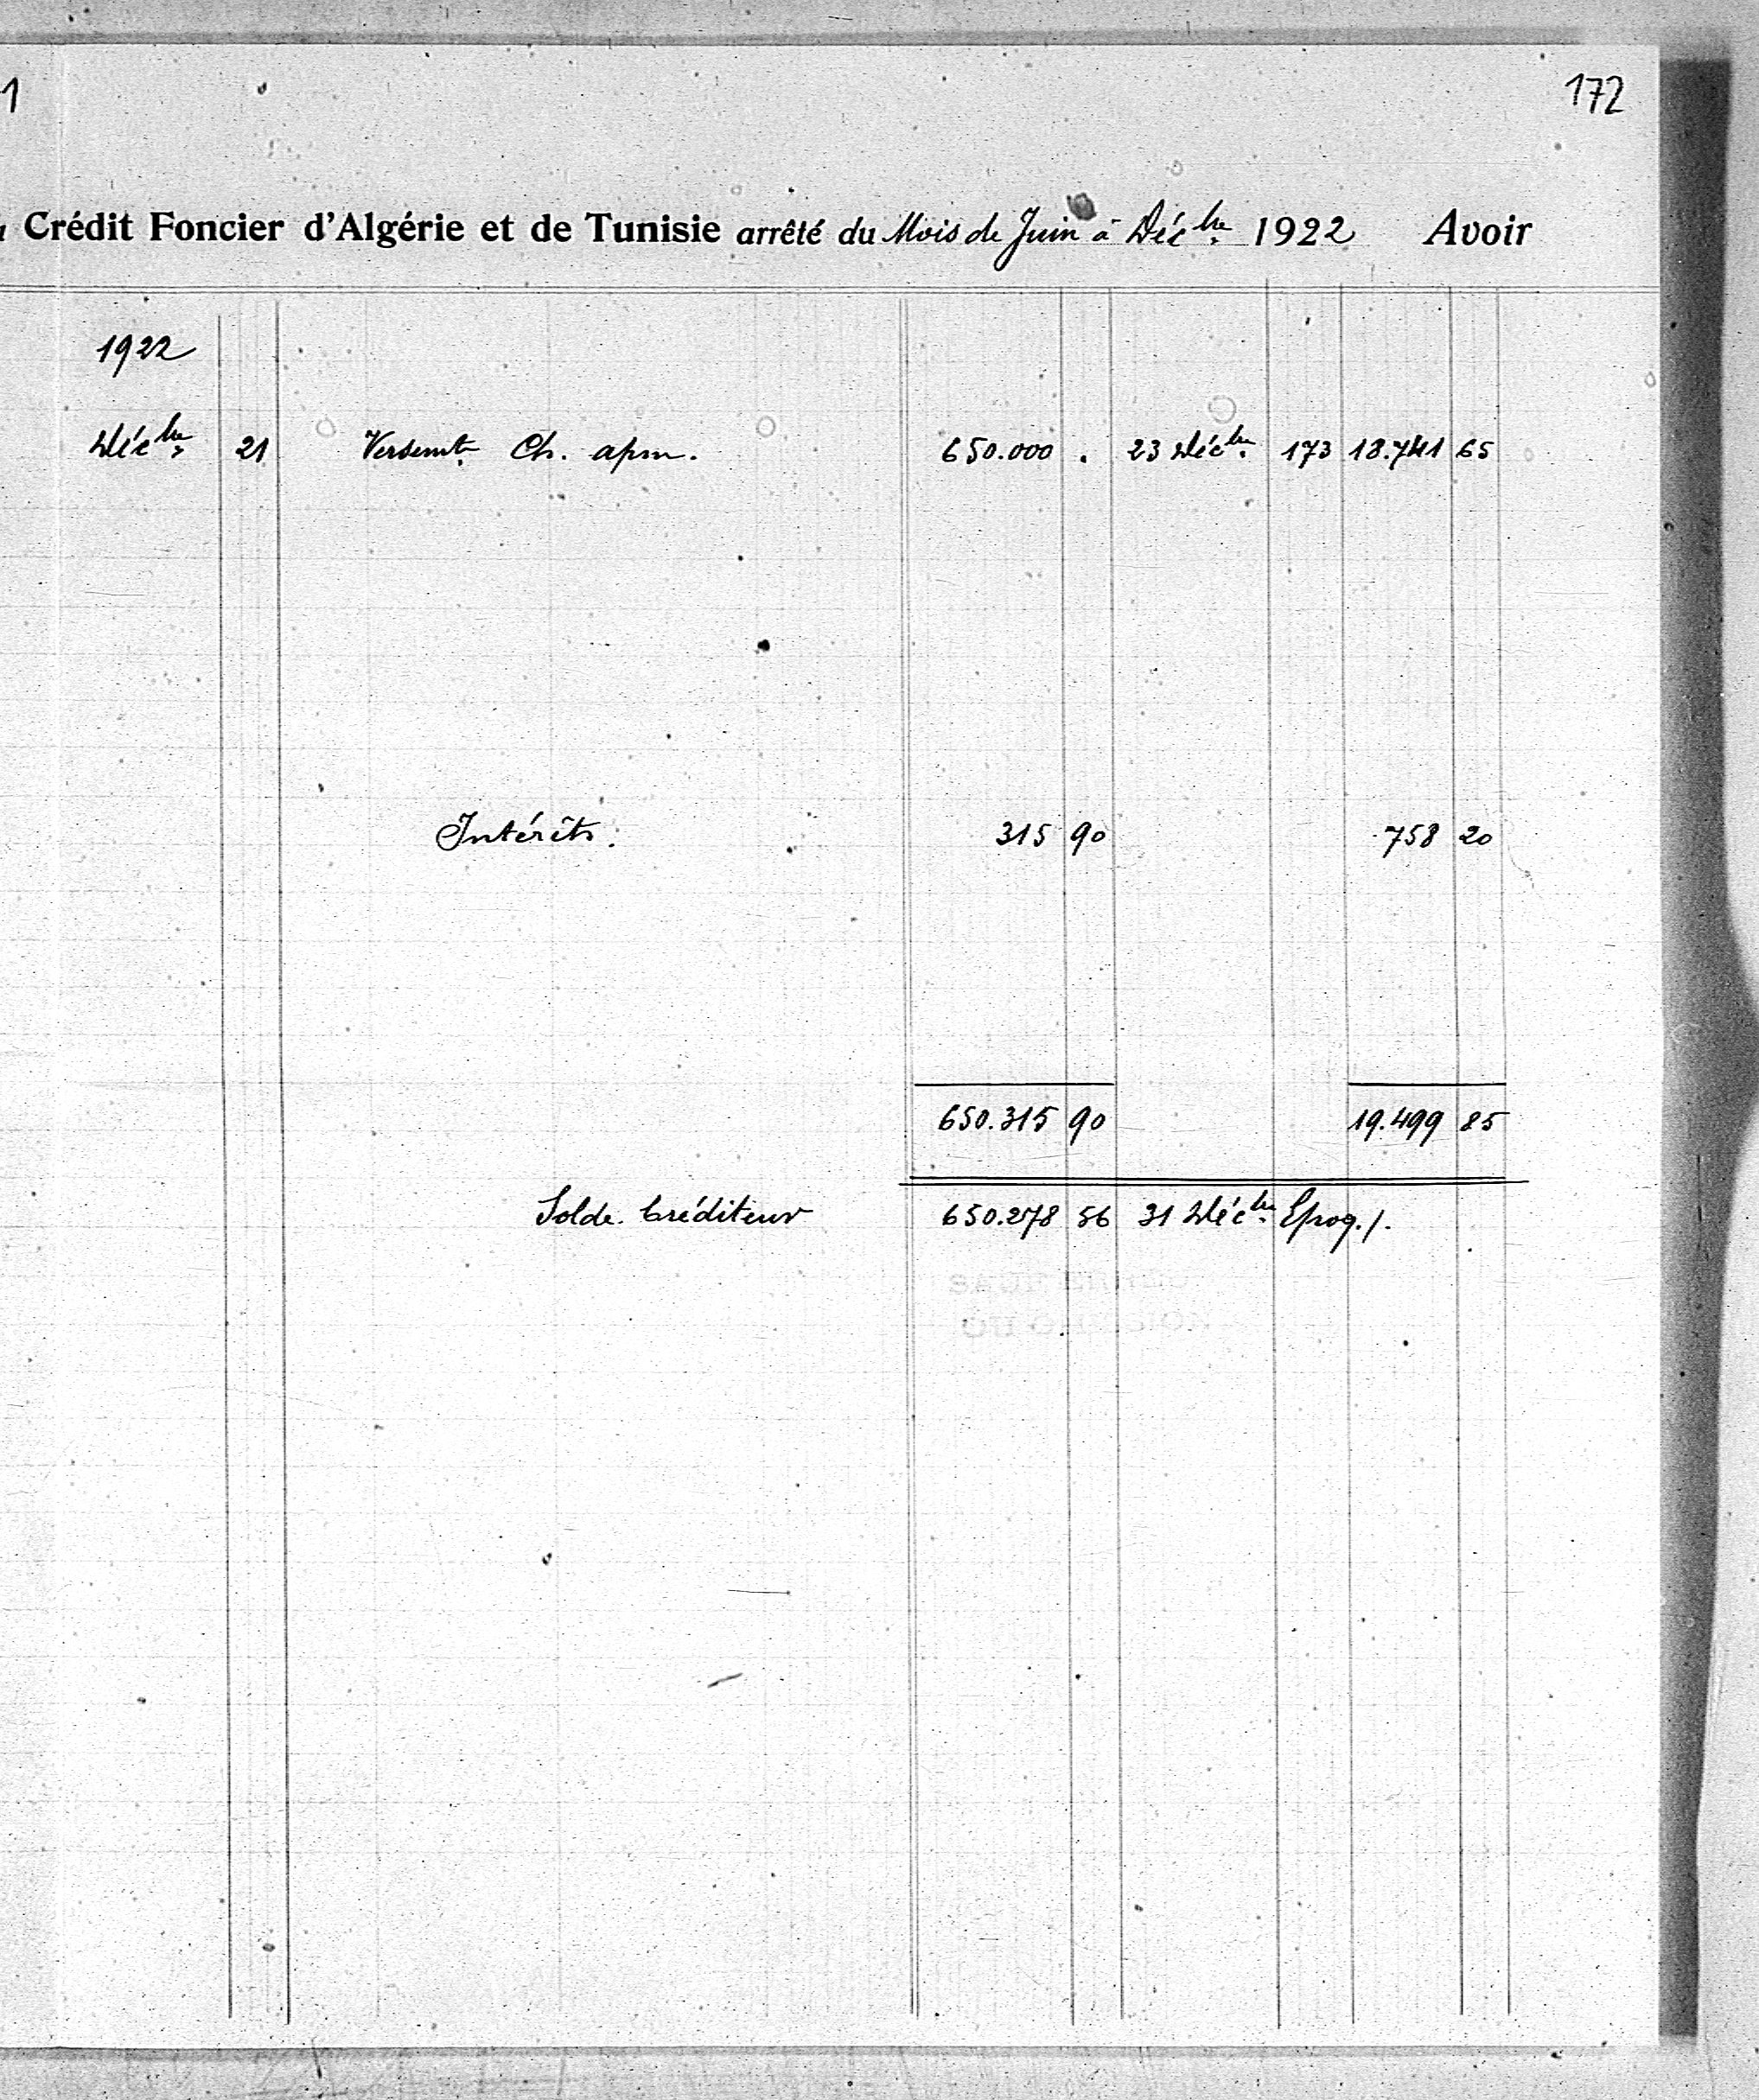 1
172
Crédit Foncier d'Algérie et de Tunisie arrêté du Mois de Juin à Décbre 1922 Avoir
1922
Décbre 21 Versemt Ch. apm. 650.000 . 23 Décbre 173 18.741 65
Intérêts. 315 90 758 20
650.315 90 19.499 85
Solde Créditeur 650.278 56 31 Décbre Epoq./.